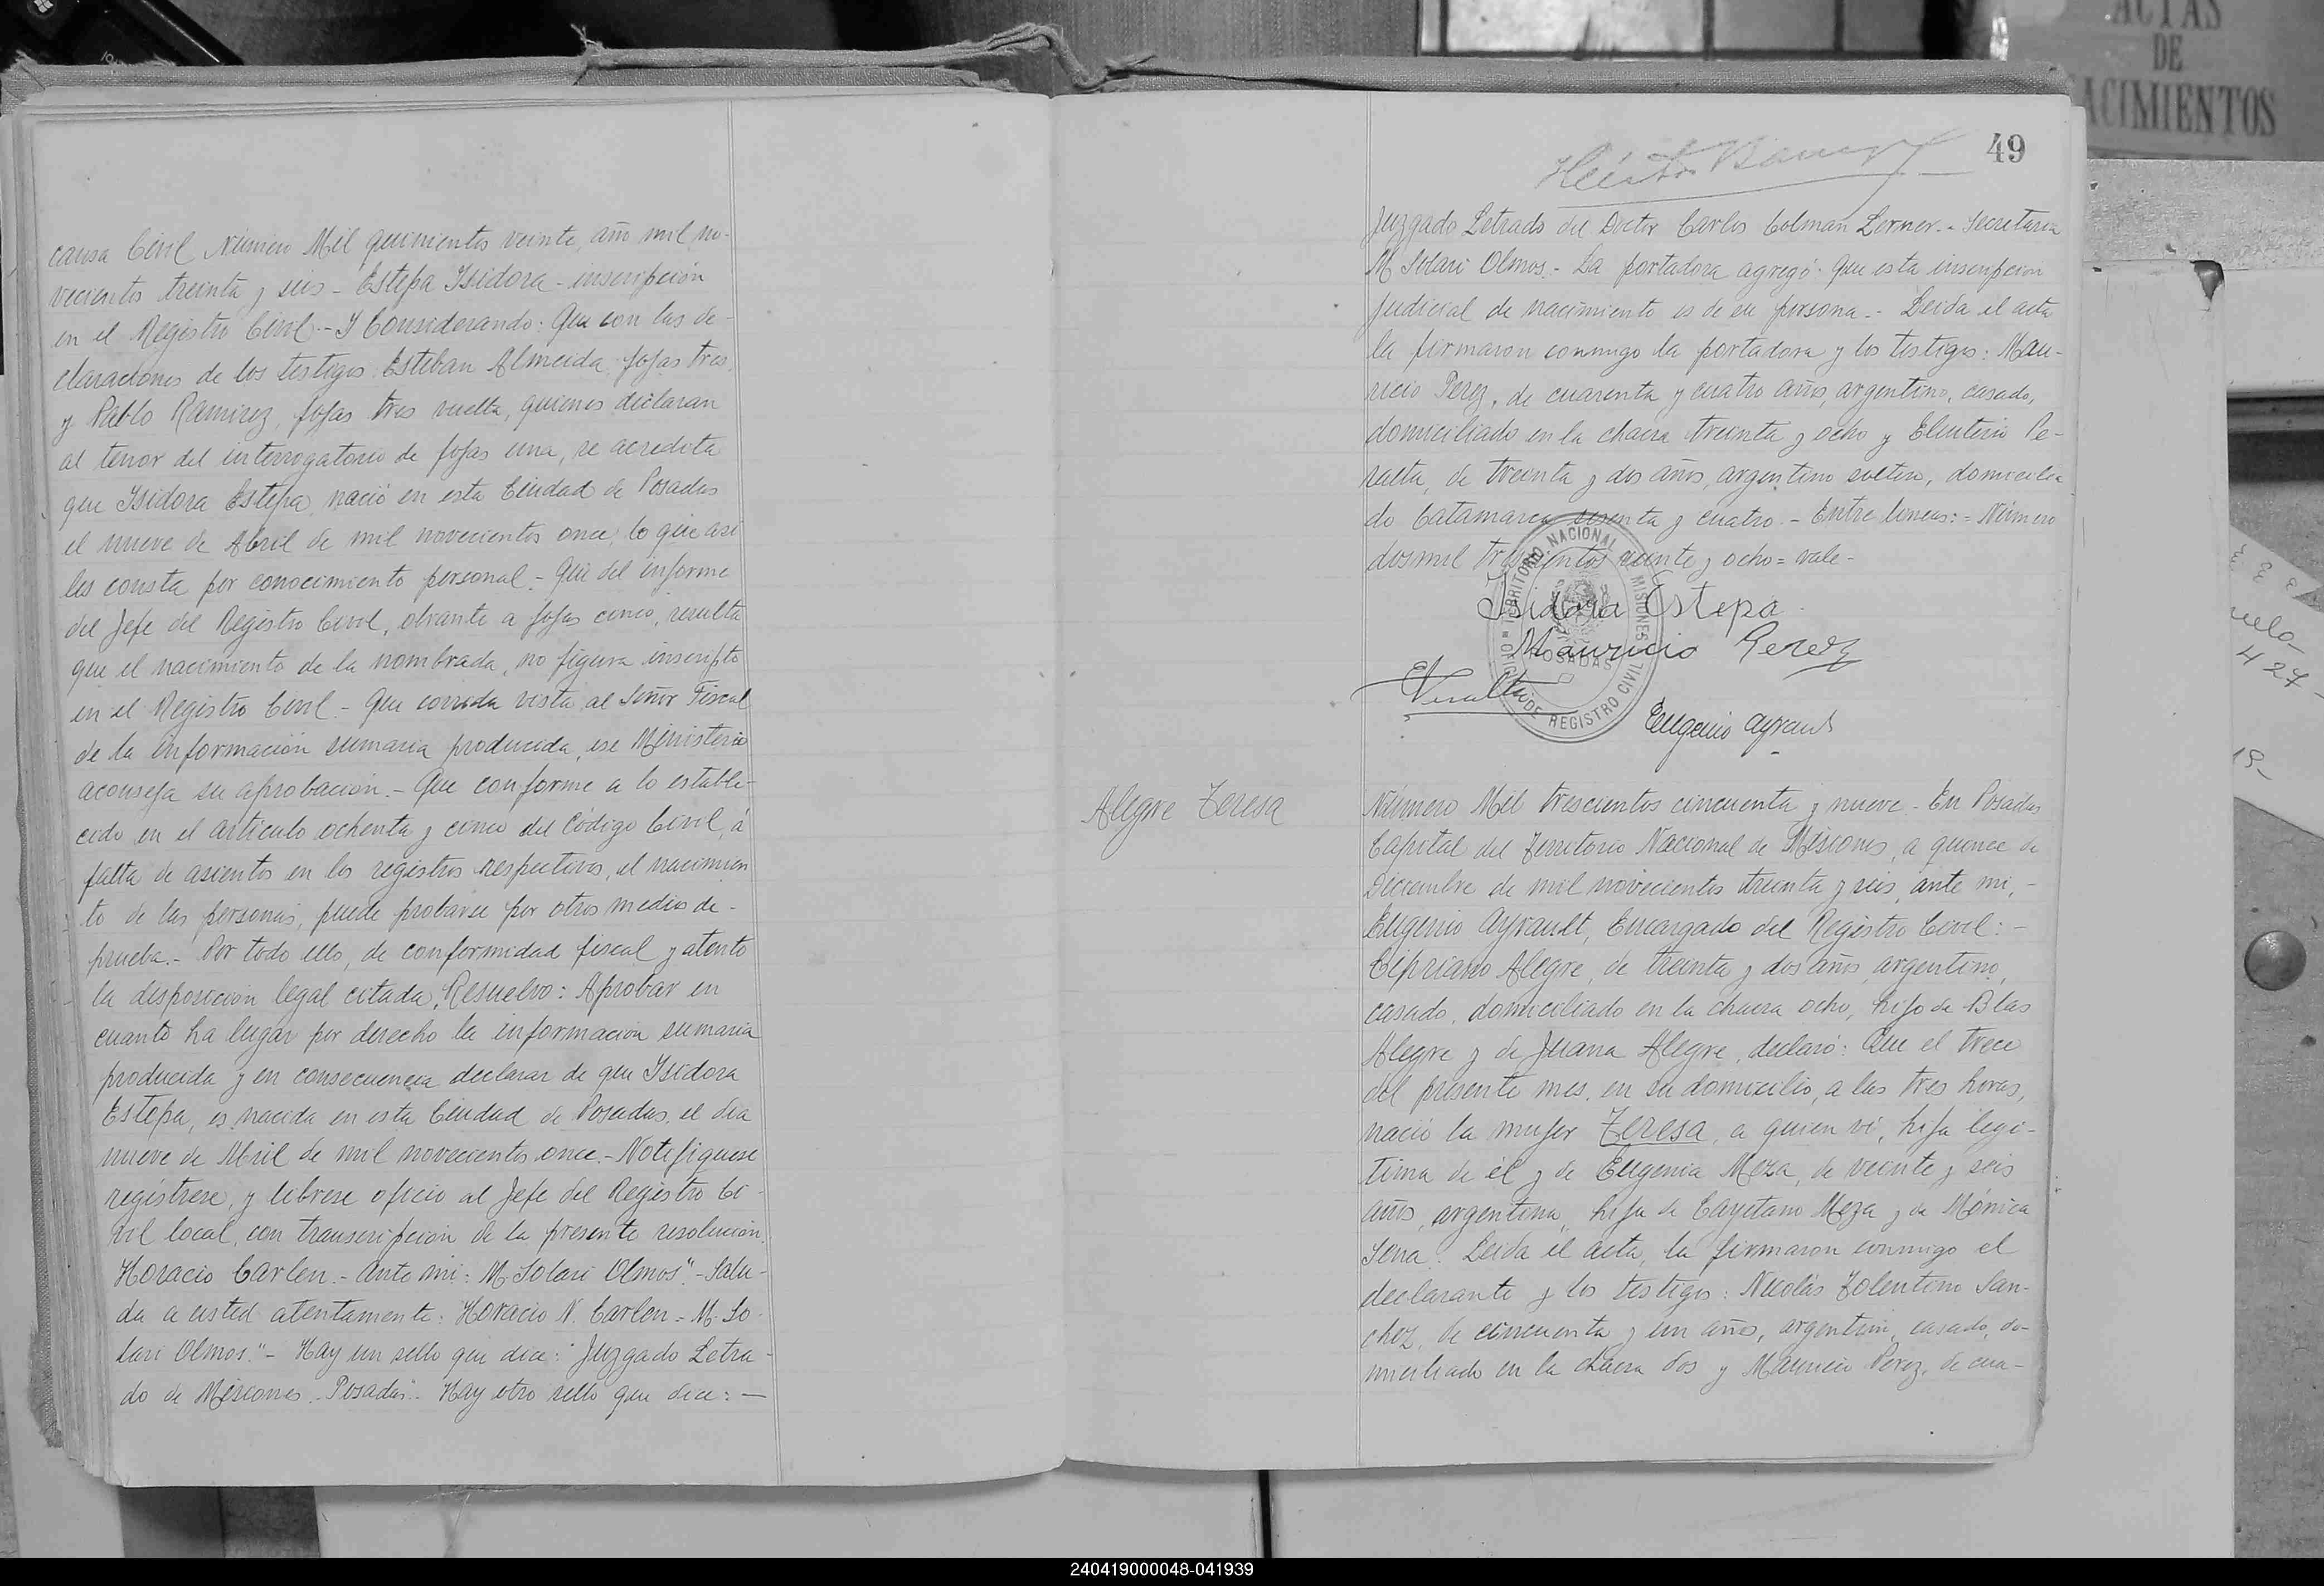 causa Civil Número Mil quinientos veinte, año mil no-
vecientos treinta y seis - Estepa Isidora - inscripción
en el Registro Civil.- Y Considerando: Que con las de-
claraciones de los testigos Esteban Almeida, fojas tres,
y Pablo Ramirez, fojas tres vuelta, quienes declaran
al tenor del interrogatorio de fojas una, se acredita
que Isidora Estepa, nació en esta Ciudad de Posadas
el nueve de Abril de mil novecientos once, lo que así
les consta por conocimiento personal.- Que del informe
del Jefe del Registro Civil, obrante a fojas cinco, resulta
que el nacimiento de la nombrada, no figura inscripto
en el Registro Civil.- Que corrida vista al Señor Fiscal
de la información sumaria producida, ese Ministerio
aconseja su aprobación.- Que conforme a lo estable-
cido en el artículo ochenta y cinco del Código Civil, á
falta de asientos en los registros respectivos, el nacimien
to de las personas, puede probarse por otros medios de -
prueba.- Por todo ello, de conformidad fiscal y atento
la disposición legal citada, Resuelvo: Aprobar en
cuanto ha lugar por derecho la información sumaria
producida y en consecuencia declarar de que Isidora
Estepa, es nacida en esta Ciudad de Posadas, el dia
nueve de Abril de mil novecientos once.- Notifiquese
regístrese, y líbrese oficio al Jefe del Registro Ci-
vil local, con transcripción de la presente resolución.
Horacio Carlen.- Ante mi: M. Solari Olmos".- Salu-
da a usted atentamente: Horacio N. Carlen - M. So-
lari Olmos."- Hay un sello que dice: "Juzgado Letra-
do de Misiones. Posadas".- Hay otro sello que dice: —
49
Juzgado Letrado del Doctor Carlos Colman Lerner.- Secretaria
M Solari Olmos.- La portadora agregó: Que esta inscripción
judicial de nacimiento es de su persona.- Leida el acta
la firmaron conmigo la portadora y los testigos: Mau-
ricio Perez, de cuarenta y cuatro años, argentino, casado,
domiciliado en la chacra treinta y ocho y Eleuterio Pe-
ralta, de treinta y dos años, argentino soltero, domicilia
do Catamarca sesenta y cuatro.- Entre lineas: = Número
dos mil trescientos veinte y ocho = vale -
TERRITORIO NACIONAL MISIONES
POSADAS
DE REGISTRO CIVIL
Isidora Estepa
Mauricio Perez
Eugenio Ayrault
Alegre Teresa
Número Mil trescientos cincuenta y nueve - En Posadas
Capital del Territorio Nacional de Misiones, a quince de
Diciembre de mil novecientos treinta y seis, ante mi, -
Eugenio Ayrault, Encargado del Registro Civil: -
Cipriano Alegre, de treinta y dos años, argentino,
casado, domiciliado en la chacra ocho, hijo de Blas
Alegre y de Juana Alegre, declaró: Que el trece
del presente mes, en su domicilio, a las tres horas,
nació la mujer Teresa, a quien vi, hija legi-
tima de él y de Eugenia Meza, de veinte y seis
años, argentina, hija de Cayetano Meza y de Mónica
Sena. Leida el acta, la firmaron conmigo el
declarante y los testigos: Nicolás Tolentino San-
chez, de cincuenta y un años, argentino, casado, do-
miciliado en la chacra dos y Mauricio Perez, de cua-
ACTAS
DE
NACIMIENTOS
427
19-
240419000048-041939